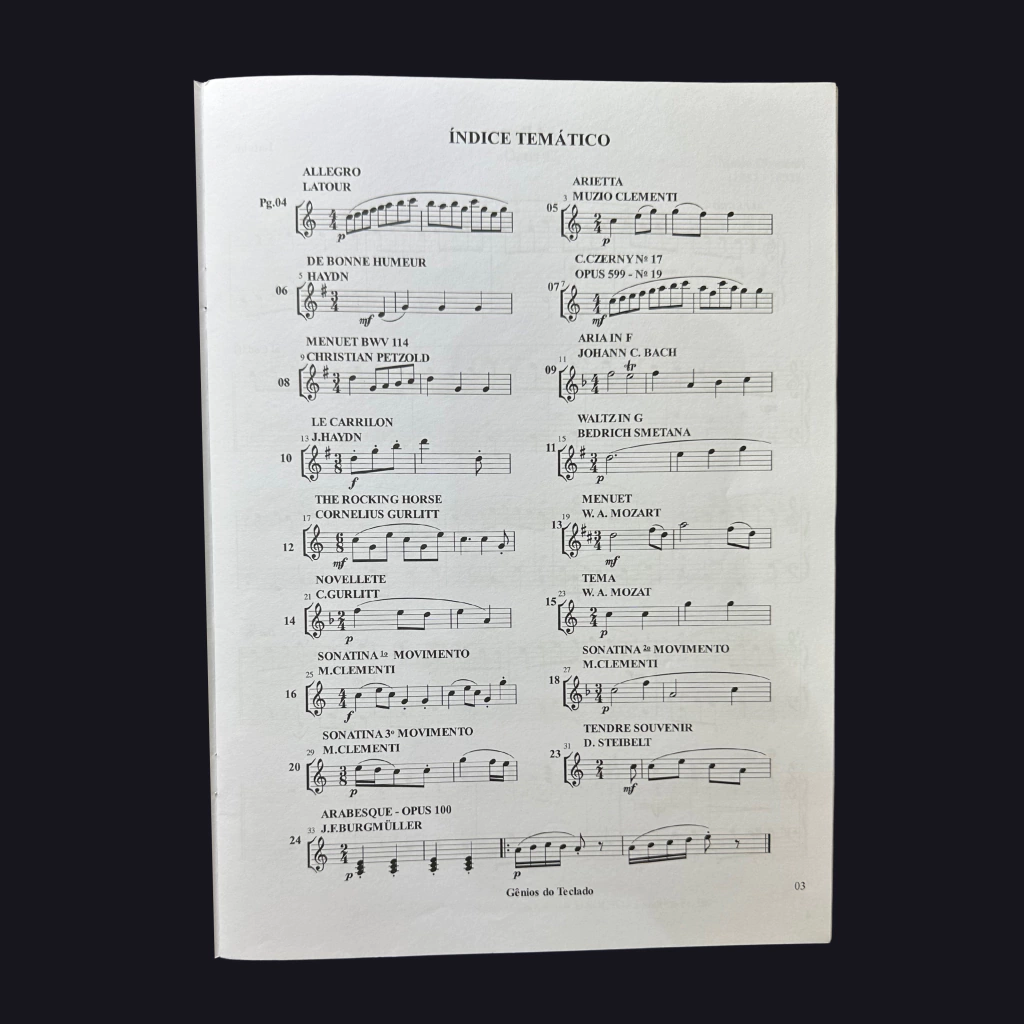 ÍNDICE TEMÁTICO
ALLEGRO
LATOUR
Pg.04
p
ARIETTA
3 MUZIO CLEMENTI
05
p
DE BONNE HUMEUR
5 HAYDN
06
mf
C.CZERNY Nº 17
OPUS 599 - Nº 19
07 7
mf
MENUET BWV 114
9 CHRISTIAN PETZOLD
08
ARIA IN F
11 JOHANN C. BACH
09
tr
LE CARRILON
13 J.HAYDN
10
f
WALTZ IN G
15 BEDRICH SMETANA
11
p
THE ROCKING HORSE
17 CORNELIUS GURLITT
12
mf
MENUET
19 W. A. MOZART
13
mf
NOVELLETE
21 C.GURLITT
14
p
TEMA
23 W. A. MOZAT
15
p
SONATINA 1º MOVIMENTO
25 M.CLEMENTI
16
f
SONATINA 2º MOVIMENTO
27 M.CLEMENTI
18
p
SONATINA 3º MOVIMENTO
29 M.CLEMENTI
20
p
TENDRE SOUVENIR
31 D. STEIBELT
23
mf
ARABESQUE - OPUS 100
33 J.F.BURGMÜLLER
24
p
p
Gênios do Teclado
03